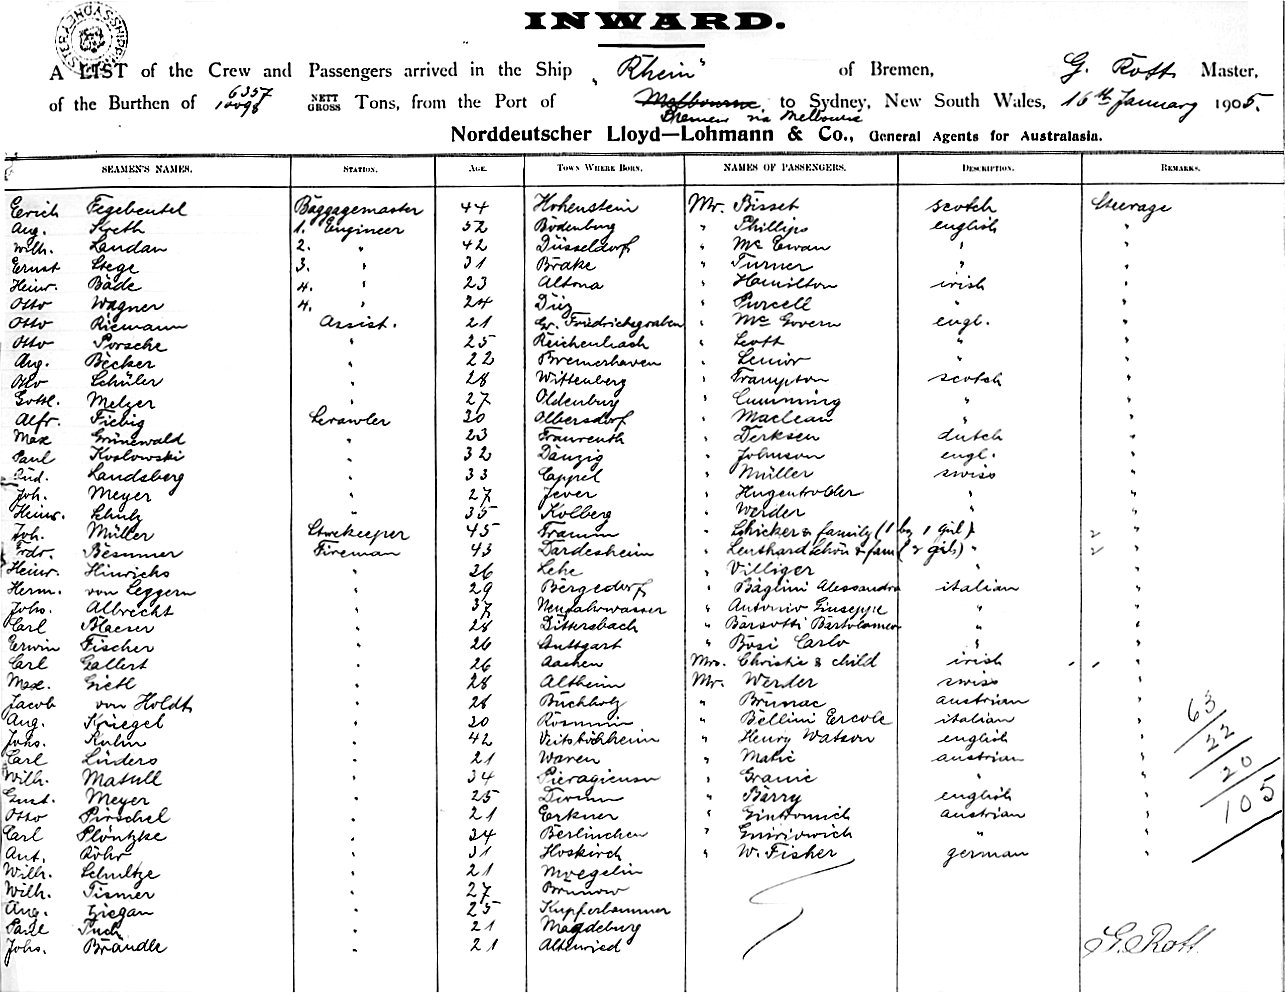 INWARD.
A LIST of the Crew and Passengers arrived in the Ship "Rhein" of Bremen, G. Rott Master,
of the Burthen of 6357 10098 NETT GROSS Tons, from the Port of Melbourne to Sydney, New South Wales, 16th January 1905.
Bremen via Melbourne
Norddeutscher Lloyd—Lohmann & Co., General Agents for Australasia.
SEAMEN'S NAMES. STATION. AGE. TOWN WHERE BORN. NAMES OF PASSENGERS. DESCRIPTION. REMARKS.
Erich Fegebeutel Baggagemaster 44 Hohenstein Mr. Bisset scotch Steerage
Aug. Kreth 1. Engineer 52 Bodenburg " Phillips english "
Wilh. Landau 2. " 42 Düsseldorf " Mc Ewan " "
Ernst Stege 3. " 31 Brake " Turner " "
Heinr. Bade 4. " 23 Altona " Hamilton irish "
Otto Wagner 4. " 24 " Purcell " "
Otto Riemann Assist. 21 Gr. Friedrichsgraben " Mc Govern engl. "
Otto Porsche " 25 Reichenbach " Scott " "
Aug. Becker " 22 Bremerhaven " Senior " "
Otto Schüler " 28 Wittenberg " Frampton scotch "
Gottl. Melzer " 27 Oldenburg " Cumming " "
Alfr. Fiebig 30 Olbersdorf " Maclean " "
Max Grünewald " 23 Fraureuth " Derksen dutch "
Paul Koslowski " 32 Danzig " Johnson engl. "
Rud. Landsberg " 33 Cappel " Müller swiss "
Joh. Meyer " 27 Jever " Hugentobler " "
Heinr. Schulz " 35 Kolberg " Werder " "
Joh. Müller Storekeeper 45 Framm " Schicker & family (1 boy 1 girl) 2 "
Frdr. Besumer Fireman 43 Dardesheim " Lenthard Schön & fam (2 girls) " 2 "
Heinr. Hinrichs " 26 Lehe " Villiger "
Herm. von Seggern " 29 Bergedorf " Bagini Alessandro italian "
Johs. Albrecht " 37 Neufahrwasser " Antonio Giuseppe " "
Carl Blaeser " 28 Dittersbach " Barsotti Bartolomeo " "
Erwin Fischer " 26 Stuttgart " Bosi Carlo " "
Carl Gallert " 26 Aachen Mrs. Christie & child irish "
Max. Gietl " 28 Altheim Mr. Werder swiss "
Jacob von Holdt " 28 Buchholz " Brunac austrian "
Aug. Kriegel " 30 " Bellini Ercole italian "
Johs. Kuhn " 42 Veitshöchheim " Henry Watson english "
Carl Lüders " 21 Waren " Matic austrian "
Wilh. Matull " 34 " Granic " "
Gust. Meyer " 25 " Barry english "
Otto Pirschel " 21 Erkner " austrian "
Carl Plöntzke " 24 Berlinchen " " "
Ant. Röhr " 31 Hoskirch " W. Fisher german "
Wilh. Schultze " 21 Moegelin
Wilh. Tismer " 27 Brunow
Aug. Ziegan " 25 Kupferhammer
Paul Tuch " 21 Magdeburg
Johs. Brändle " 21 Altenried
63
22
20
105
G. Rott